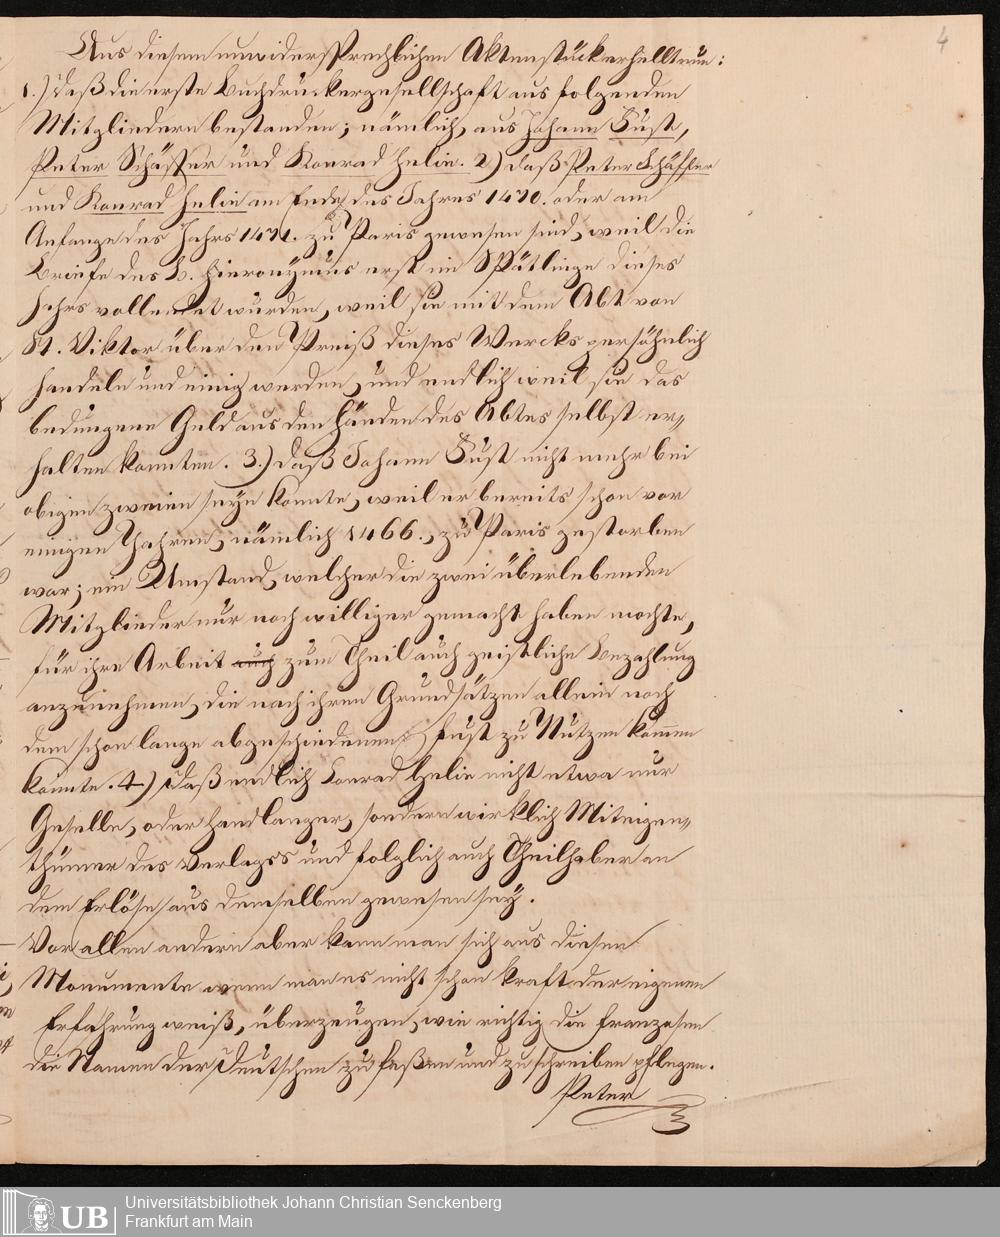 4
Aus diesem unwidersprechlichen Aktenstück erhellt nun:
1.) daß die erste Buchdruckergesellschaft aus folgenden
Mitgliedern bestanden; nämlich, aus Johann Fust,
Peter Schäffer und Konrad Helin. 2) daß Peter Schäffer
und Konrad Helin am Ende des Jahres 1470. oder am
Anfange des Jahrs 1471. zu Paris gewesen sind, weil die
Briefe des h. Hieronymus erst im Spätlinge dieses
Jahrs vollendet wurden, weil sie mit dem Abt von
St. Viktor über den Preiß dieses Wercks persöhnlich
handeln und einig werden, und endlich weil sie das
bedungene Geld aus den Händen des Abtes selbst er-
halten konnten. 3.) daß Johann Fust nicht mehr bei
obigen zweien seyn konnte, weil er bereits schon vor
einigen Jahren, nämlich 1466., zu Paris gestorben
war; ein Umstand, welcher die zwei überlebenden
Mitglieder nur noch williger gemacht haben mochte,
für ihre Arbeit auch zum Theil auch geistliche Bezahlung
anzunehmen, die nach ihren Grundsätzen allein noch
dem schon lange abgeschiedenen Fust zu Nutzen kommen
konnte. 4) daß endlich Conrad Helin nicht etwa nur
Geselle, oder Handlanger, sondern wirklich Miteigen-
thümer des Verlages und folglich auch Theilhaber an
dem Erlöse aus demselben gewesen sey.
Vor allen andern aber kann man sich aus diesen
Monumente wenn man es nicht schon kraft der eigenen
Erfahrung weiß, überzeugen, wie richtig die Franzosen
die Namen der Deutschen zu faßen und zu schreiben pflegen.
Peter
UB
Universitätsbibliothek Johann Christian Senckenberg
Frankfurt am Main